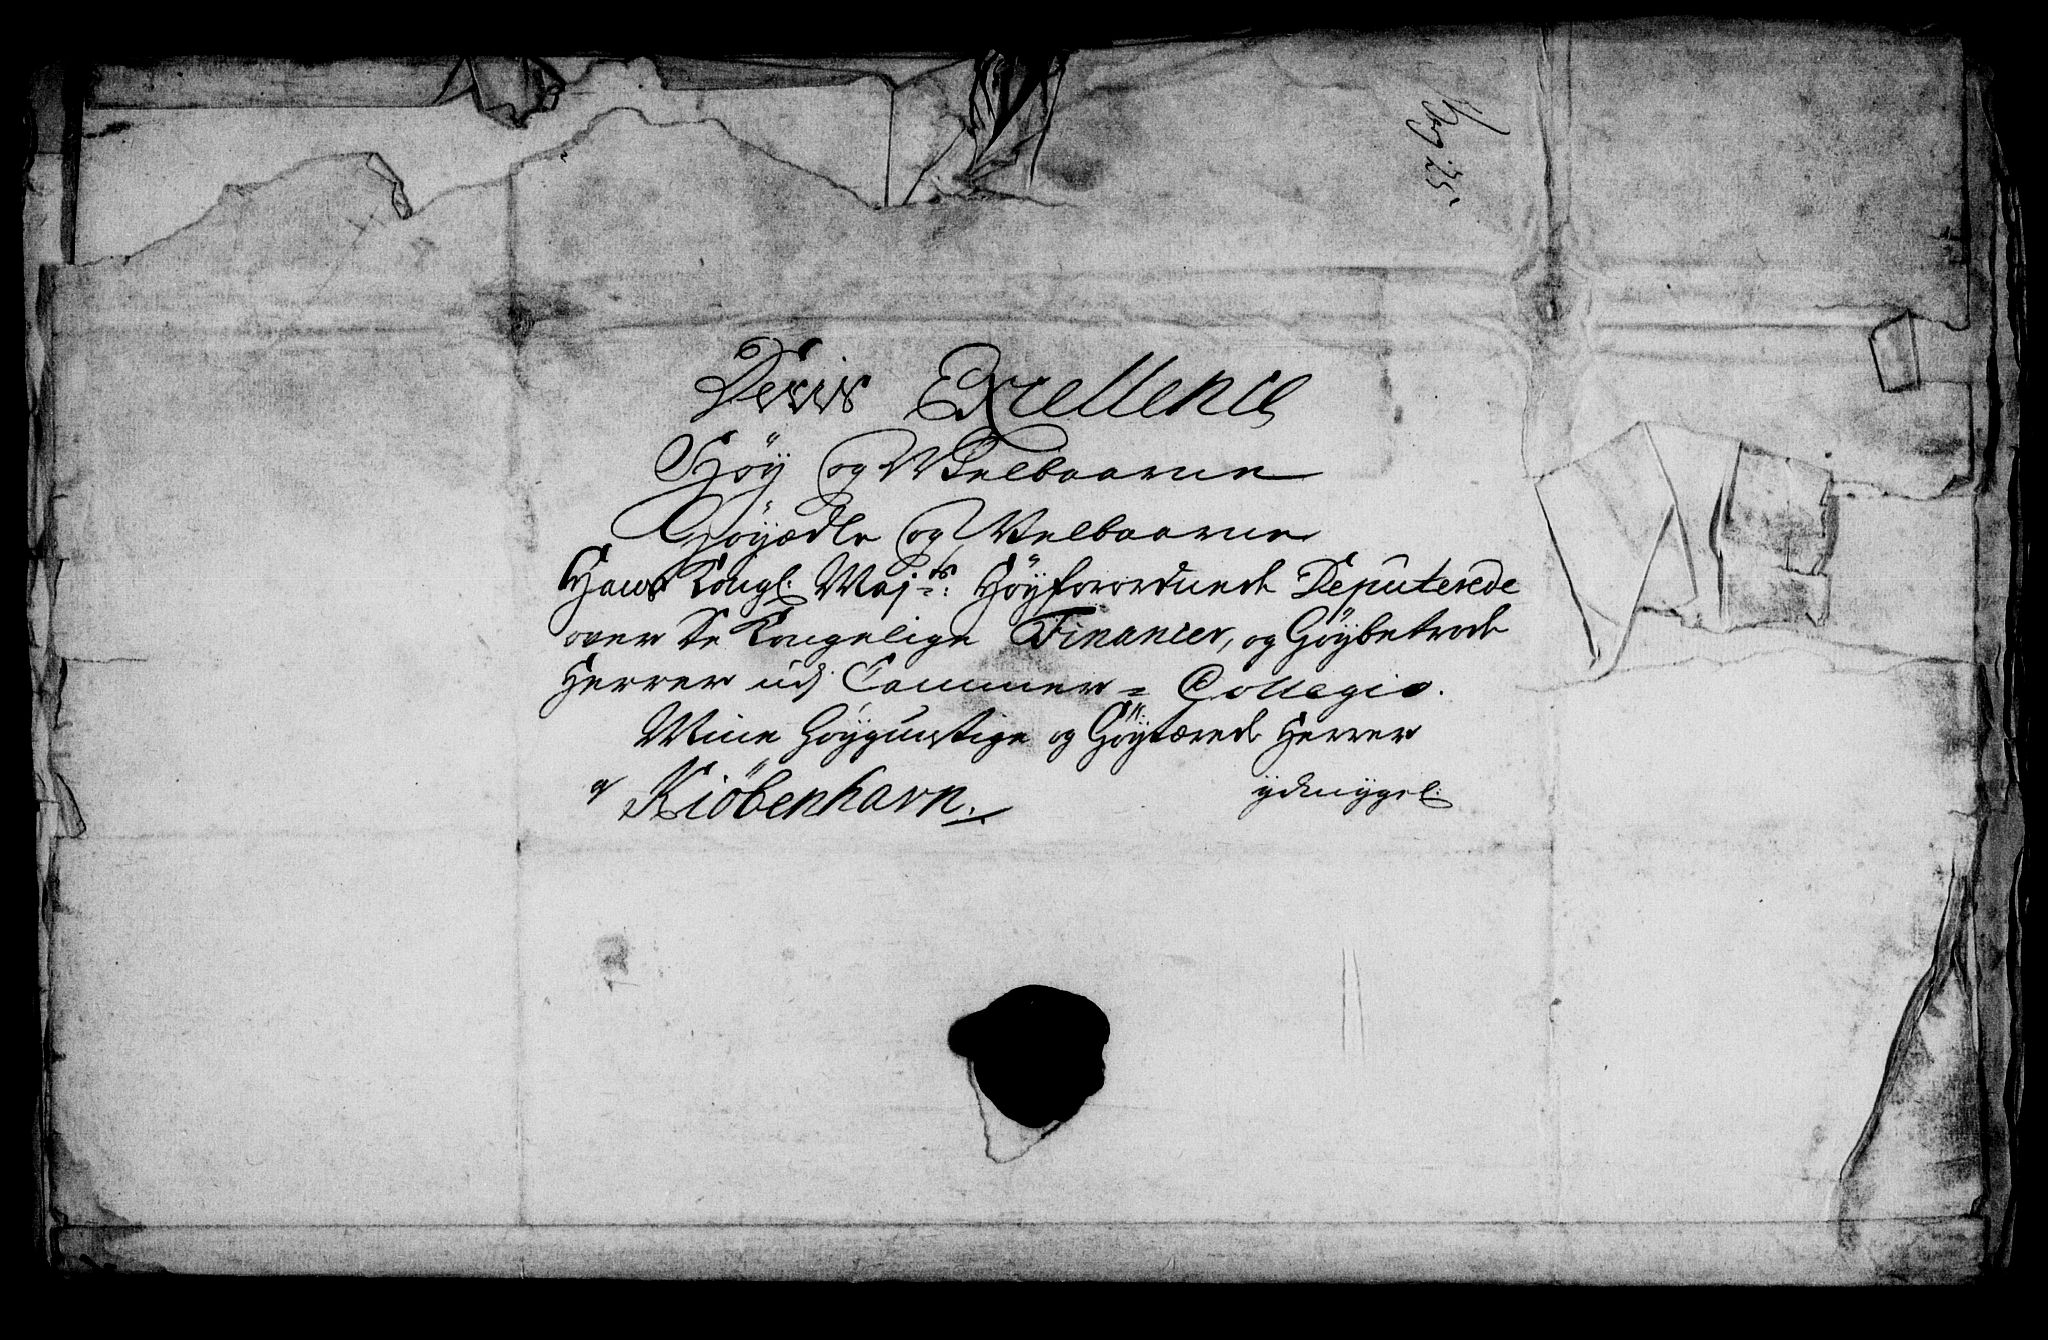 Deris Excellence
Høy og Welbaarne
Høyædle og Welbaarne
Hans Kongl: Maj:ts Høyforordnede Deputerede
over De Kongelige Financer, og Høybetroede
Herrer udj Cammer = Collegio.
Mine Høygunstige og Høytærede Herrer
Kiöbenhavn.
ydmygel: